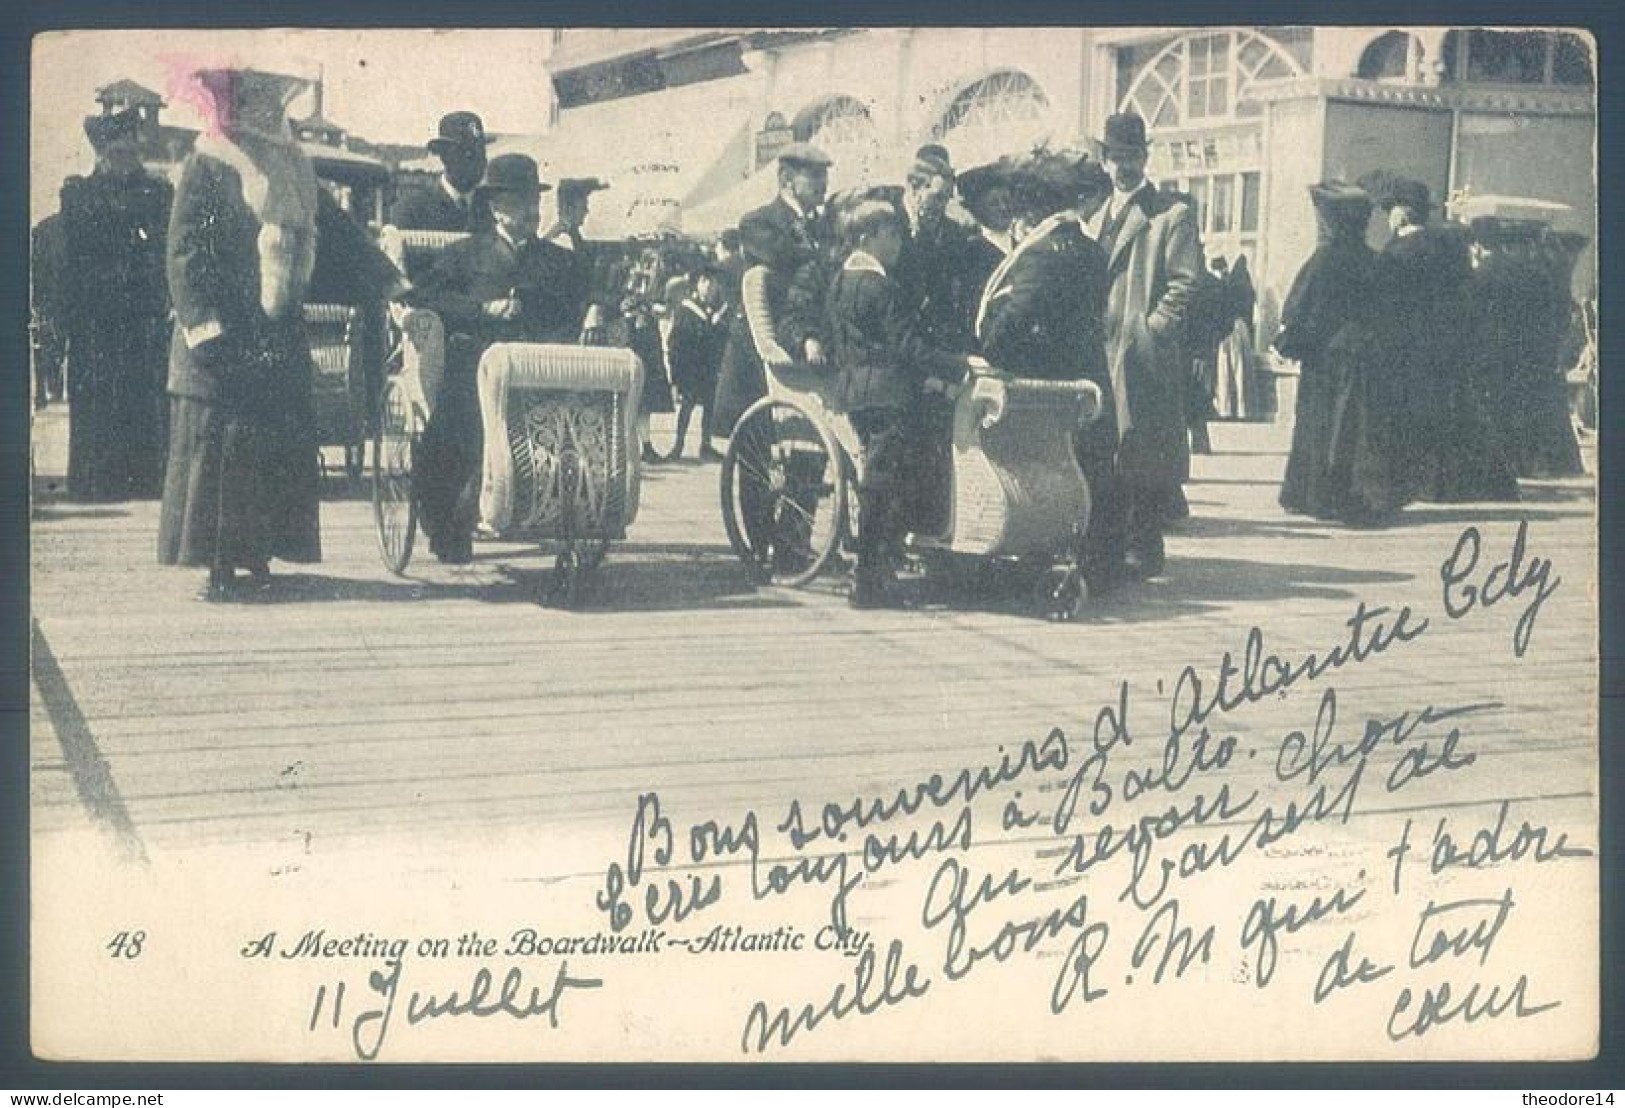 Bons souvenirs d'Atlantic Cdy
Ecris toujours à Balto.
Au revoir chou
mille bons baisers de
R. M qui t'adore
de tout
cœur
48 A Meeting on the Boardwalk ~ Atlantic City.
11 Juillet
theodore14